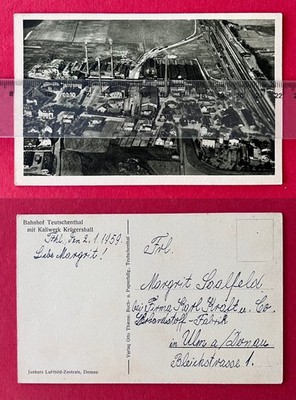 Bahnhof Teutschenthal
mit Kaliwerk Krügershall
Thl. den 2.1.1959.
Liebe Margrit!
Verlag Otto Thieme, Buch- u. Papierhdlg., Teutschenthal
Junkers Luftbild-Zentrale, Dessau
Frl.
Margrit Saalfeld
bei Firma Karl Kräft u. Co.
Brennstoff-Fabrik
in Ulm a/Donau
Bleichstrasse 1.